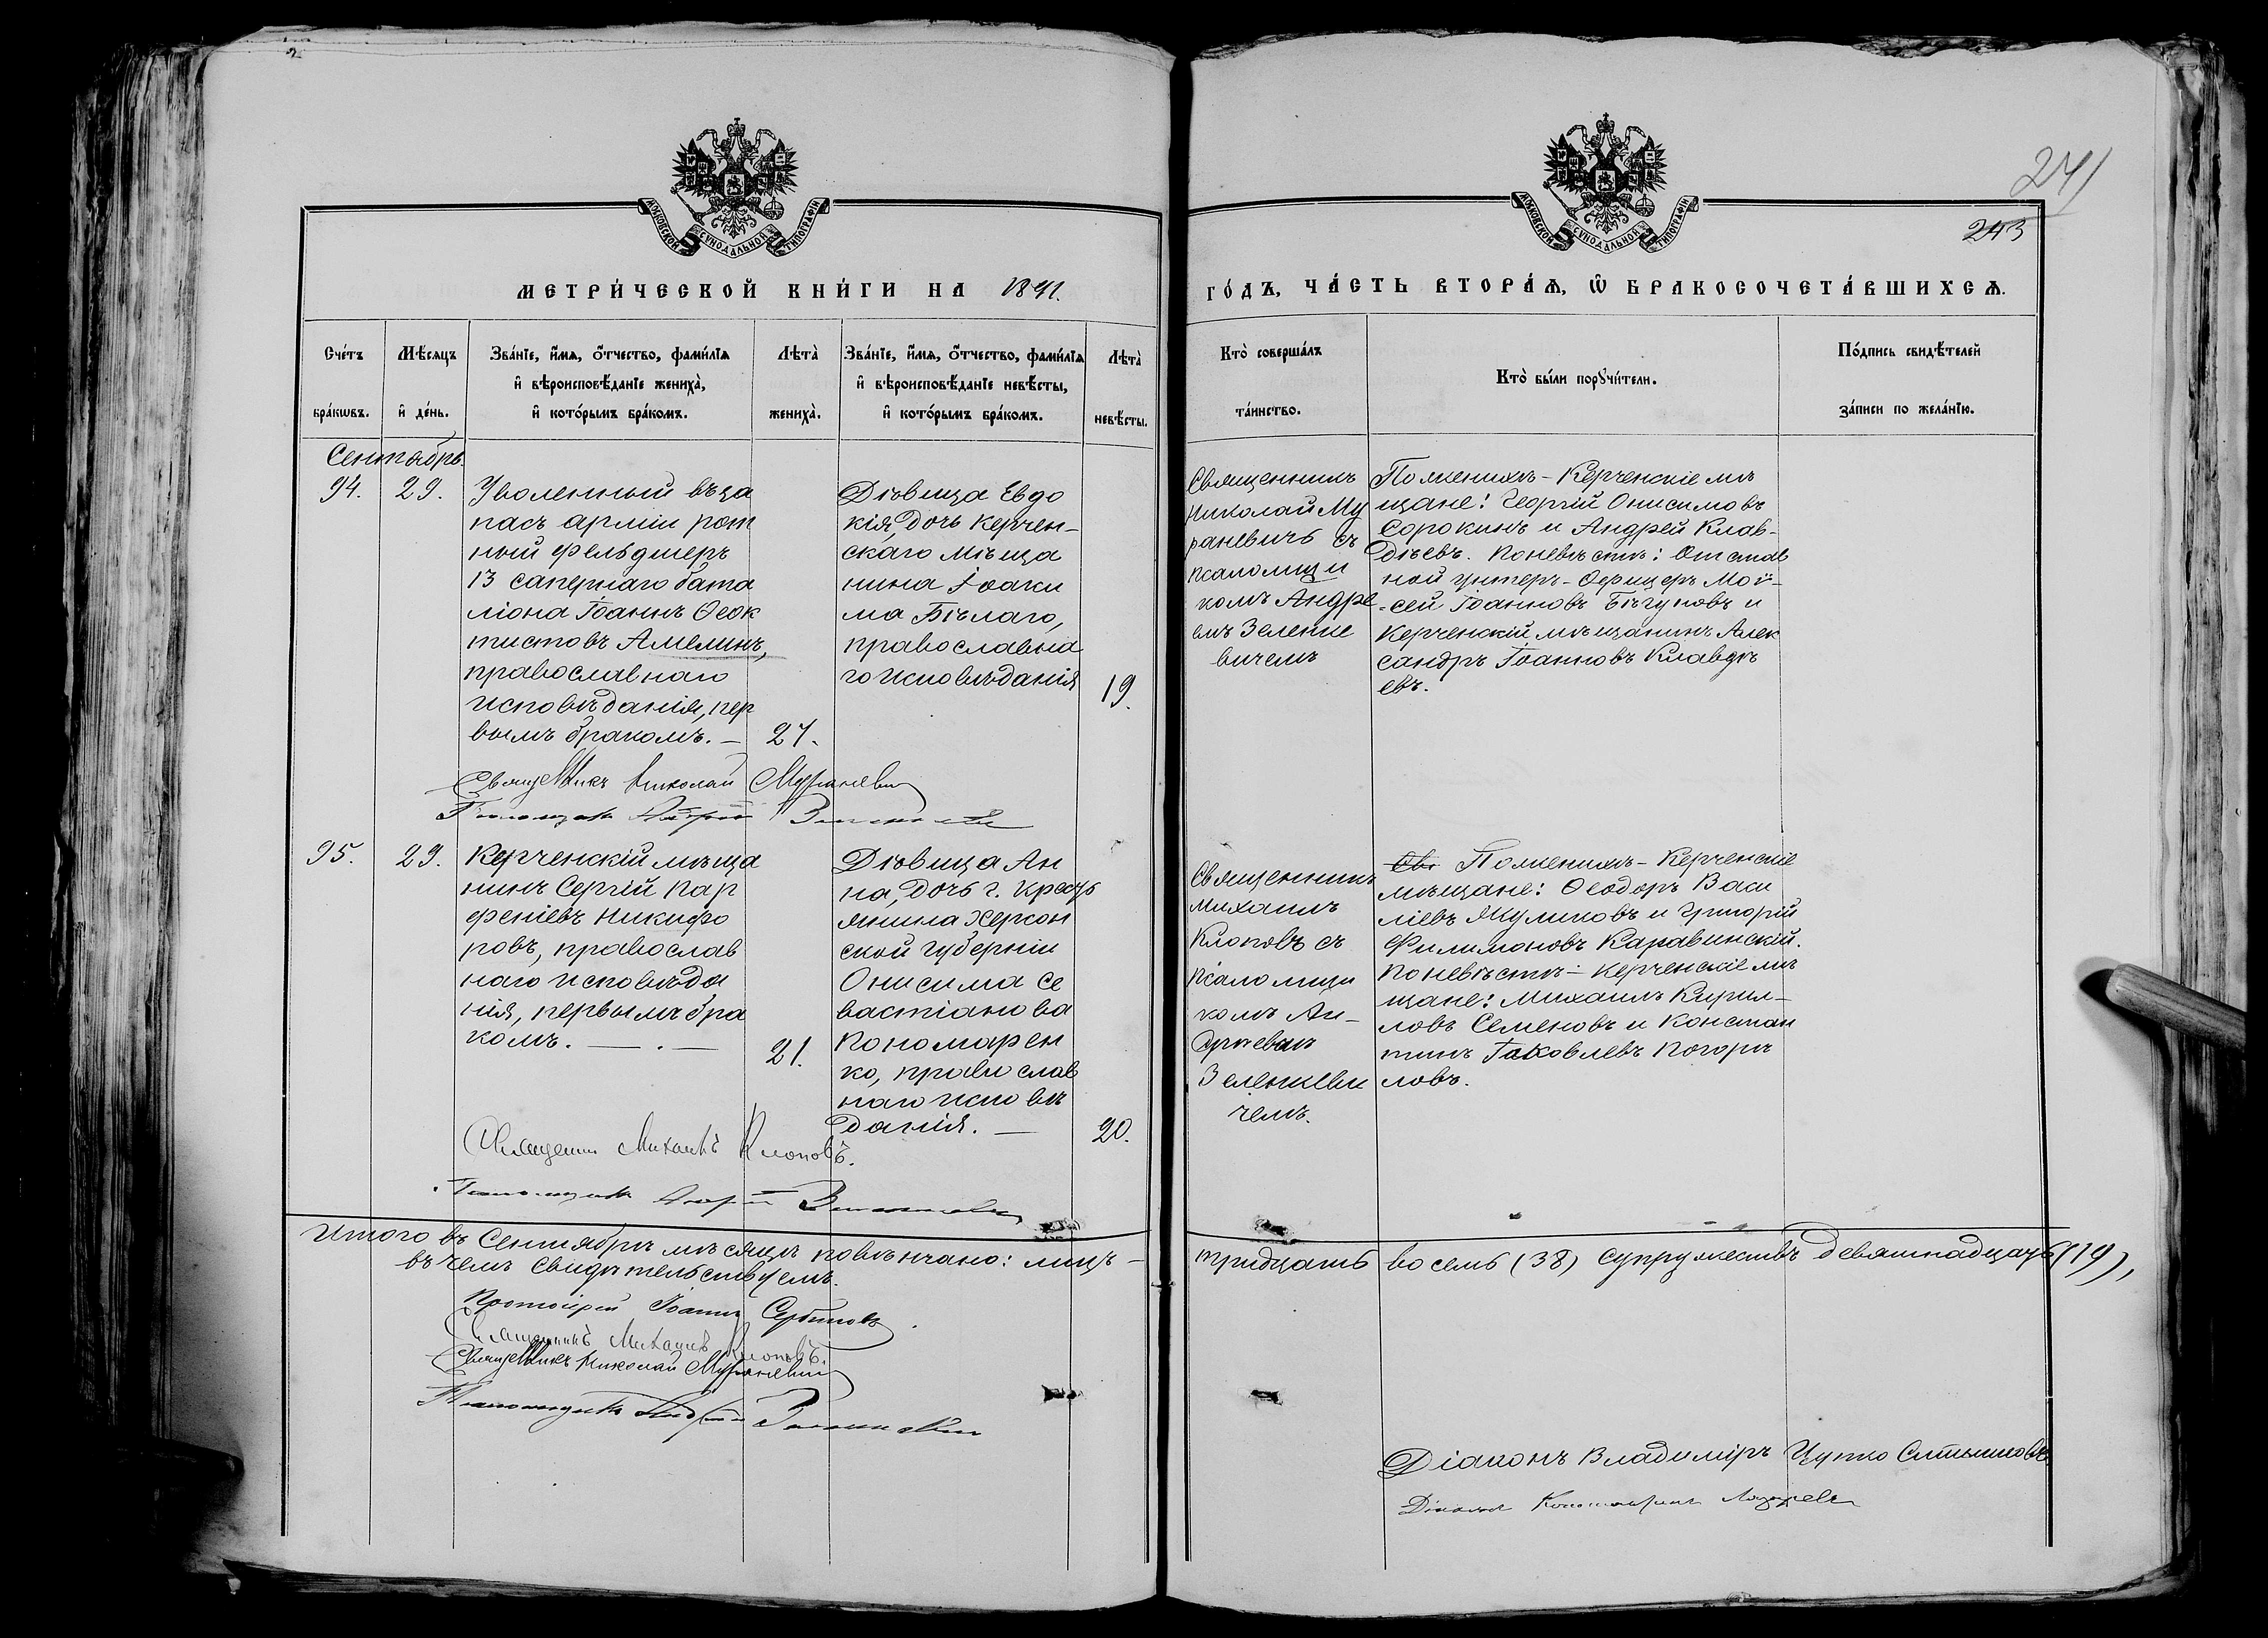 241
243
МОСКОВСКОЙ СѴНОДАЛЬНОЙ ТИПОГРАФІИ
МОСКОВСКОЙ СѴНОДАЛЬНОЙ ТИПОГРАФІИ
МЕТРИ́ЧЕСКОЙ КНИ́ГИ НА 1891.
ГО́ДЪ, ЧА́СТЬ ВТОРА́Ѧ, Ѡ҆ БРАКОСОЧЕТА́ВШИХСѦ.
Сче́тъ
бра́кѡвъ.
Мѣ́сяцъ
и҆ де́нь.
Зва́нїе, и҆́мѧ, ѻ҆́тчество, фами́лїѧ
и҆ вѣроисповѣ́данїе жениха̀,
и҆ кото́рымъ бра́комъ.
Лѣта̀
жениха̀.
Зва́нїе, и҆́мѧ, ѻ҆́тчество, фами́лїѧ
и҆ вѣроисповѣ́данїе невѣ́сты,
и҆ кото́рымъ бра́комъ.
Лѣта̀
невѣ́сты.
Кто̀ соверша́лъ
та́инство.
Кто̀ бы́ли порꙋчи́тели.
По́дпись свидѣ́телей
за́писи по жела́нїю.
Сентябрь.
94.
29.
Уволенный въ за
пасъ арміи рот
ный фельдшеръ
13 сапернаго бата
ліона Іоаннъ Ѳеок
тистовъ Амелинъ,
православнаго
исповѣданія, пер
вымъ бракомъ. —
27.
Дѣвица Евдо
кія, дочь Керчен-
скаго мѣща
нина Іоаки
ма Бѣлаго,
православна
го исповѣданія
19.
Священникъ
Николай Му
раневичъ съ
псаломщи
комъ Андре
емъ Зеленке
вичемъ
По женихѣ - Керченскіе мѣ
щане: Георгій Онисимовъ
Сорокинъ и Андрей Клав-
діевъ. По невѣстѣ: Отстав
ной унтеръ-офицеръ Мои-
сей Іоанновъ Бѣгуновъ и
Керченскій мѣщанинъ Алек
сандръ Іоанновъ Клавді
евъ.
Священникъ Николай Мураневич
Псаломщикъ Андрей Зеленкевич
95.
29.
Керченскій мѣща
нинъ Сергій Пар
феніевъ Никифо
ровъ, православ
наго исповѣда
нія, первымъ бра
комъ. — . —
21.
Дѣвица Ан
на, дочь г. Крестья
янина Херсон
ской губерніи
Онисима Се
вастіанова
Пономарен
ко, православ
наго исповѣ
данія. —
20.
Священникъ
Михаилъ
Клоповъ съ
псаломщи
комъ Ан-
дреемъ
Зеленкеви
чемъ.
Св. По женихѣ - Керченскіе
мѣщане: Ѳеодоръ Васи
ліевъ Жуликовъ и Григорій
Филимоновъ Каравинскій.
По невѣстѣ - Керченскіе мѣ
щане: Михаилъ Кирил-
ловъ Семеновъ и Констан
тинъ Іаковлевъ Погорѣ
ловъ.
Священник Михаилъ Клоповъ.
Псаломщикъ Андрей Зеленкевич
Итого въ Сентябрѣ мѣсяцѣ повѣнчано: лицъ - тридцать восемь (38) супружествъ девятнадцать (19),
въ чемъ свидѣтельствуемъ.
Протоіерей Іоаннъ Сербиновъ.
Священникъ Михаилъ Клоповъ.
Священникъ Николай Мураневич
Псаломщикъ Андрей Зеленкевич
Діаконъ Владиміръ Цупко
Діаконъ Константинъ Лазаревъ